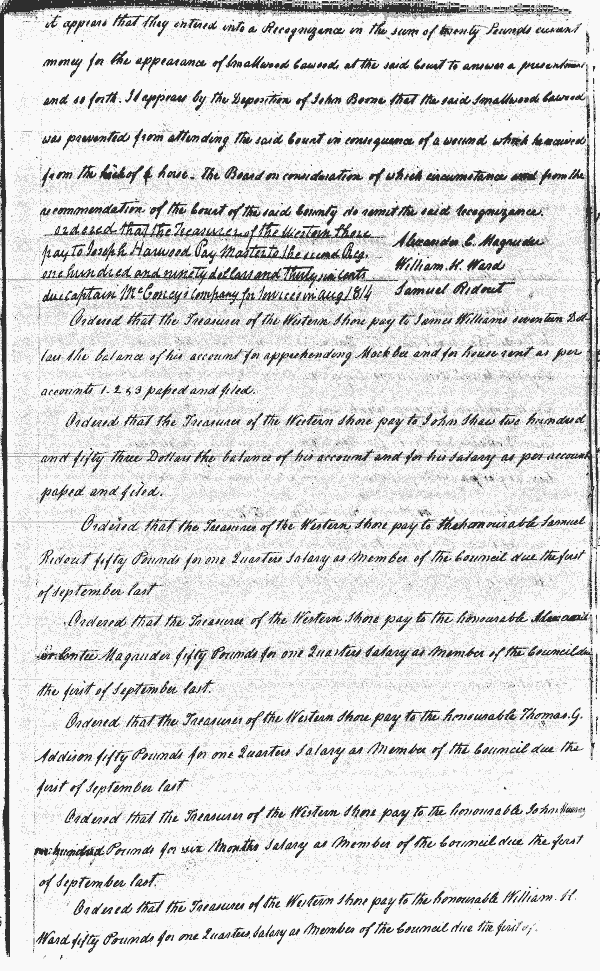 it appears that they entered into a Recognizance in the sum of twenty Pounds current
money for the appearance of Smallwood Cawood at the said Court to answer a presentment
and so forth. It appears by the Deposition of John Boone that the said Smallwood Cawood
was prevented from attending the said Court in consequence of a wound which he received
from the kick of a horse. the Board on consideration of which circumstance and from the
recommendation of the Court of the said County do remit the said recognizance.
ordered that the Treasurer of the Western Shore
pay to Joseph Harwood Pay Master to the second Reg.
one hundred and ninety dollars and thirty six cents
due Captain McConeys Company for services in aug 1814
Alexander C. Magruder
William. H. Ward
Samuel Ridout
Ordered that the Treasurer of the Western Shore pay to James Williams seventeen Dol-
lars the balance of his account for apprehending Mackbee and for house rent as per
accounts 1. 2 & 3 passed and filed.
Ordered that the Treasurer of the Western Shore pay to John Shaw two hundred
and fifty three Dollars the balance of his account and for his salary as per account
passed and filed.
Ordered that the Treasurer of the Western Shore pay to the honourable Samuel
Ridout fifty Pounds for one Quarters Salary as Member of the Council due the first
of September last
Ordered that the Treasurer of the Western Shore pay to the honourable
Contee Magruder fifty Pounds for one Quarters Salary as Member of the Council due
the first of September last.
Ordered that the Treasurer of the Western Shore pay to the honourable Thomas. G.
Addison fifty Pounds for one Quarters Salary as Member of the Council due the
first of September last
Ordered that the Treasurer of the Western Shore pay to the honourable John
one hundred Pounds for six Months Salary as Member of the Council due the first
of September last.
Ordered that the Treasurer of the Western Shore pay to the honourable William. H.
Ward fifty Pounds for one Quarters Salary as Member of the Council due the first of